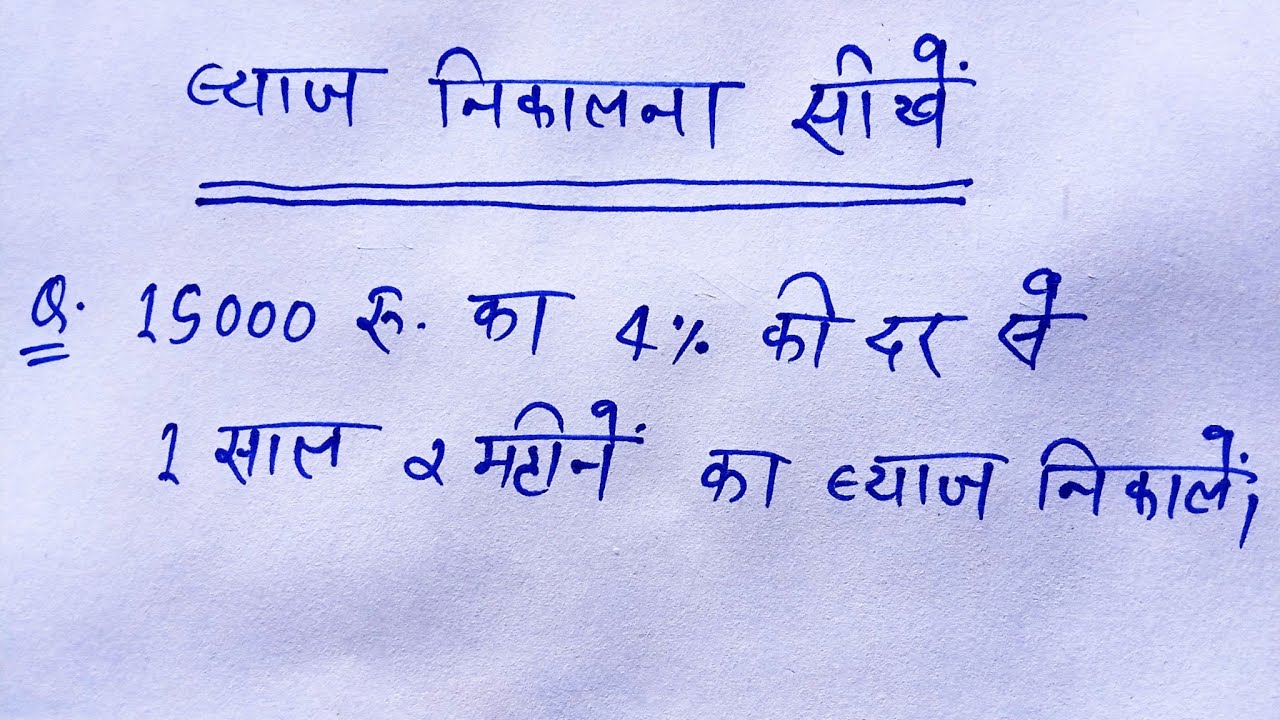 ब्याज निकालना सीखें
Q. 15000 रू. का 4% की दर से
1 साल 2 महीनें का ब्याज निकालें,